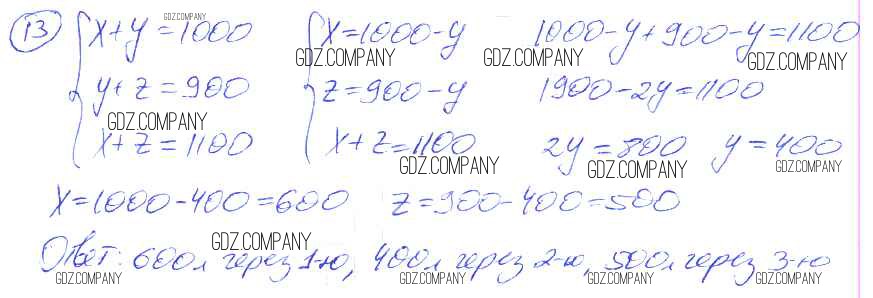 GDZ.COMPANY
13 x+y=1000 x=1000-y 1000-y+900-y=1100
GDZ.COMPANY GDZ.COMPANY GDZ.COMPANY
y+z=900 z=900-y 1900-2y=1100
GDZ.COMPANY
x+z=1100 x+z=1100 2y=800 y=400
GDZ.COMPANY GDZ.COMPANY GDZ.COMPANY
x=1000-400=600 z=900-400=500
GDZ.COMPANY
Ответ: 600л через 1-ю, 400л через 2-ю, 500л через 3-ю
GDZ.COMPANY GDZ.COMPANY GDZ.COMPANY GDZ.COMPANY